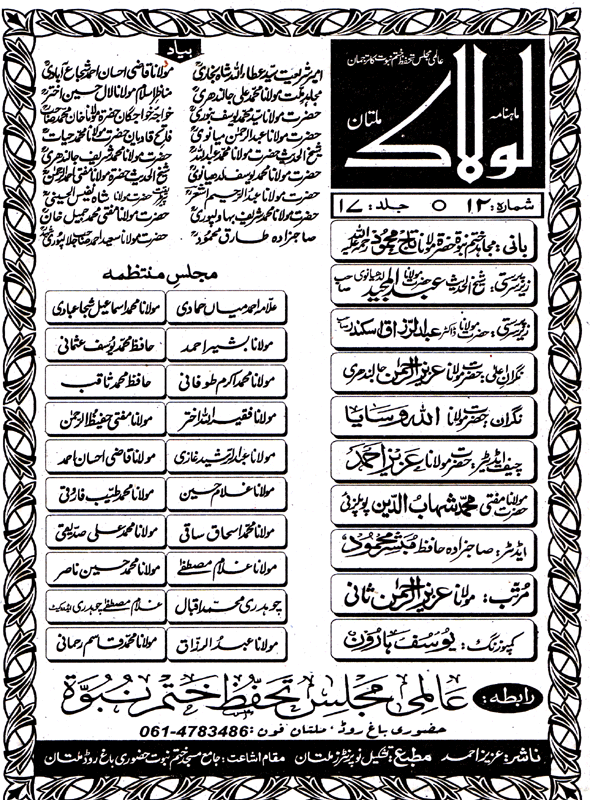 عالمی مجلس تحفظ ختم نبوت کا ترجمان
ماہنامہ
لولاک
ملتان
شمارہ: ۱۲ ○ جلد: ۱۷
بانی: مجاہد ختم نبوۃ حضرۃ مولانا تاج محمود رحمۃ اللہ علیہ
زیر سرپرستی: شیخ الحدیث حضرت مولانا عبدالمجید لدھیانوی صاحب
زیر سرپرستی: حضرت مولانا ڈاکٹر عبدالرزاق اسکندر صاحب
نگران اعلیٰ: حضرت مولانا عزیز الرحمٰن جالندھری
نگران: حضرت مولانا اللہ وسایا
چیف ایڈیٹر: حضرت مولانا عزیز احمد
حضرت مولانا مفتی محمد شہاب الدین پوپلزئی
ایڈیٹر: صاحبزادہ حافظ مبشر محمود
مرتب: مولانا عزیز الرحمٰن ثانی
کمپوزنگ: یوسف ہارون
بیاد
امیر شریعت سید عطاء اللہ شاہ بخاری
مولانا قاضی احسان احمد شجاع آبادی
مجاہد ملت مولانا محمد علی جالندھری
مناظر اسلام مولانا لال حسین اختر
حضرت مولانا سید محمد یوسف بنوری
خواجہ خواجگان حضرۃ مولانا خان محمد صاحب
حضرت مولانا عبدالرحمٰن میانوی
فاتح قادیان حضرت مولانا محمد حیات
شیخ الحدیث حضرت مولانا محمد عبداللہ
حضرت مولانا محمد شریف جالندھری
حضرت مولانا محمد یوسف لدھیانوی
شیخ الحدیث حضرۃ مولانا مفتی احمد الرحمٰن
حضرت مولانا عبدالرحیم اشعر
حضرت مولانا شاہ نفیس الحسینی
حضرت مولانا محمد شریف بہاولپوری
حضرت مولانا مفتی محمد جمیل خان
صاحبزادہ طارق محمود
حضرت مولانا سعید احمد صاحب جلالپوری
مجلس منتظمہ
علامہ احمد میاں حمادی
مولانا محمد اسماعیل شجاعبادی
مولانا بشیر احمد
حافظ محمد یوسف عثمانی
مولانا محمد اکرم طوفانی
حافظ محمد ثاقب
مولانا فقیر اللہ اختر
مولانا مفتی حفیظ الرحمٰن
مولانا عبدالرشید غازی
مولانا قاضی احسان احمد
مولانا غلام حسین
مولانا محمد طیب فاروقی
مولانا محمد اسحاق ساقی
مولانا محمد علی صدیقی
مولانا غلام مصطفےٰ
مولانا محمد حسین ناصر
چوہدری محمد اقبال
غلام مصطفےٰ چوہدری ایڈووکیٹ
مولانا عبدالرزاق
مولانا محمد قاسم رحمانی
رابطہ: عالمی مجلس تحفظ ختم نبوۃ
حضوری باغ روڈ، ملتان فون: 061-4783486
ناشر: عزیز احمد مطبع: تشکیل نو پرنٹرز ملتان مقام اشاعت: جامع مسجد ختم نبوت حضوری باغ روڈ ملتان